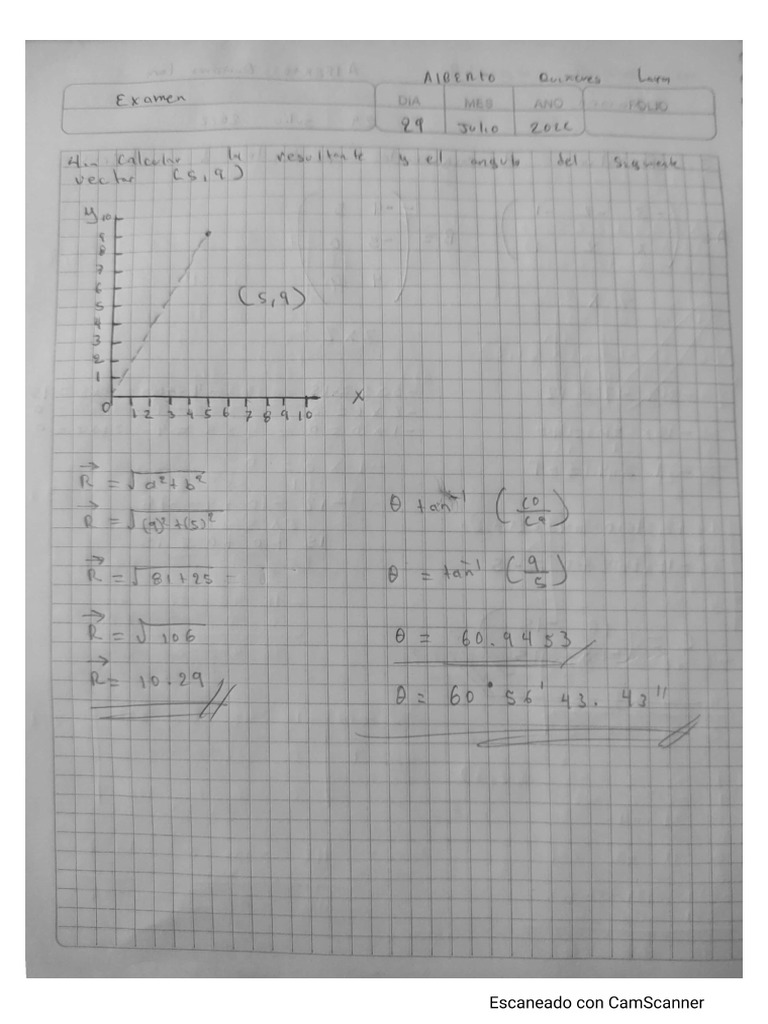 Alberto Quiñones Lara
Examen DIA MES AÑO FOLIO
29 Julio 2022
4.- Calcular la resultante y el angulo del siguiente
vector (5,9)
y 10
9
8
7
6
(5,9)
5
4
3
2
1
0 1 2 3 4 5 6 7 8 9 10 x
R⃗ = √a²+b²
θ tan⁻¹ (CO/CA)
R⃗ = √(9)²+(5)²
R⃗ = √81+25
θ = tan⁻¹ (9/5)
R⃗ = √106
θ = 60.9453
R⃗ = 10.29
θ = 60° 56' 43. 43"
Escaneado con CamScanner